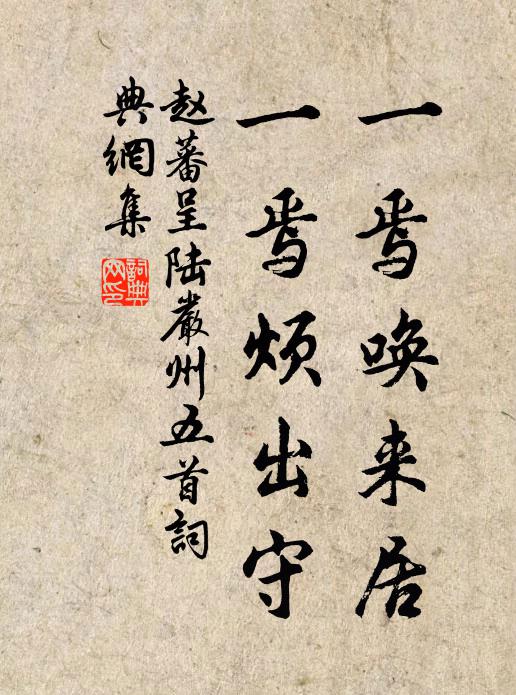 一焉唤来居
一焉烦出守
赵蕃呈陆嚴州五首詞
典網集
詞典
网印